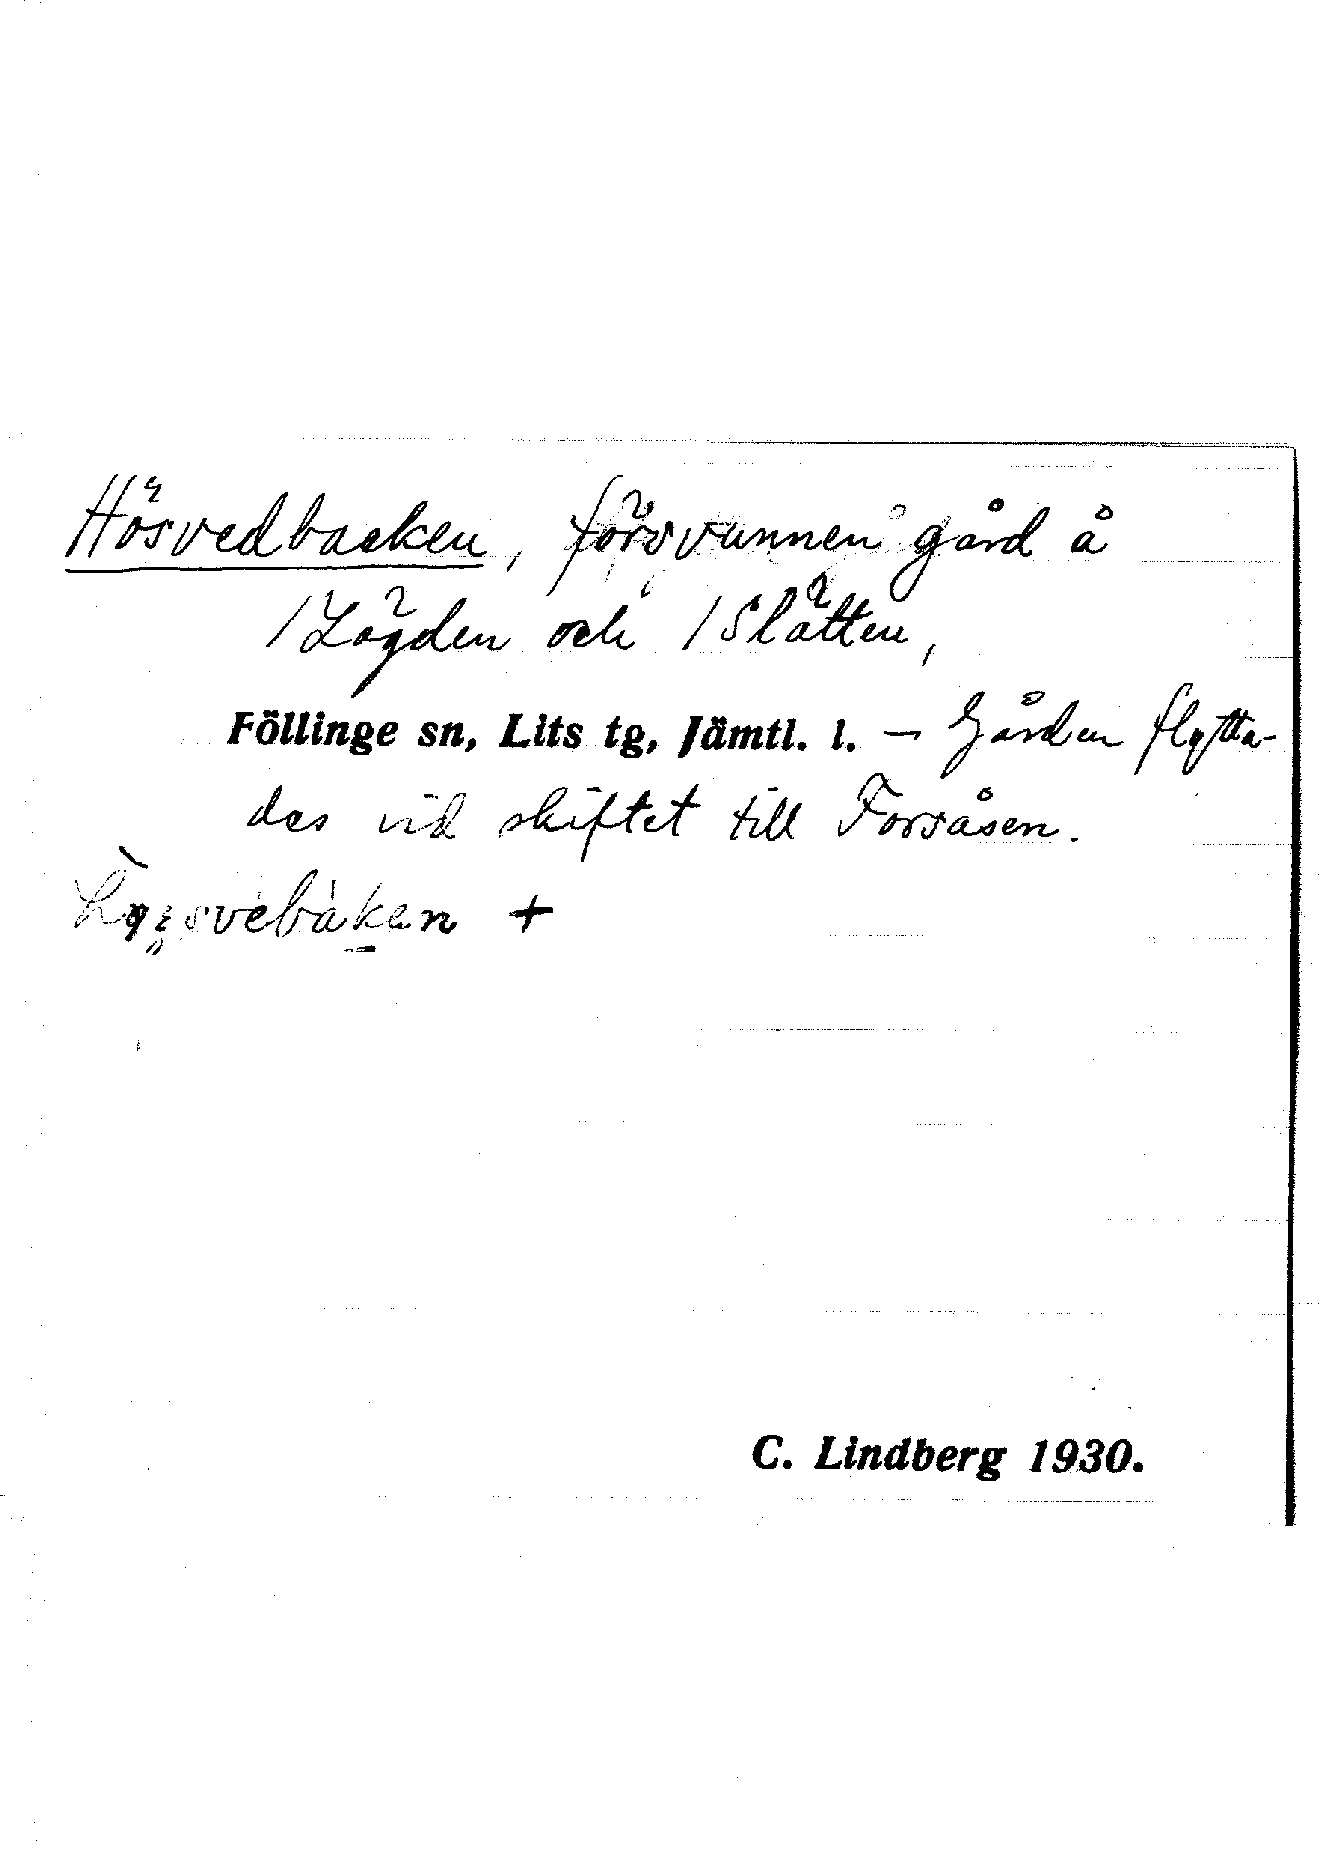 Hösvedbacken, försvunnen gård å
/ Lögden och / Slätten,
Föllinge sn, Lits tg, Jämtl. l. – Gården flytta-
des vid skiftet till Forsåsen.
+
C. Lindberg 1930.